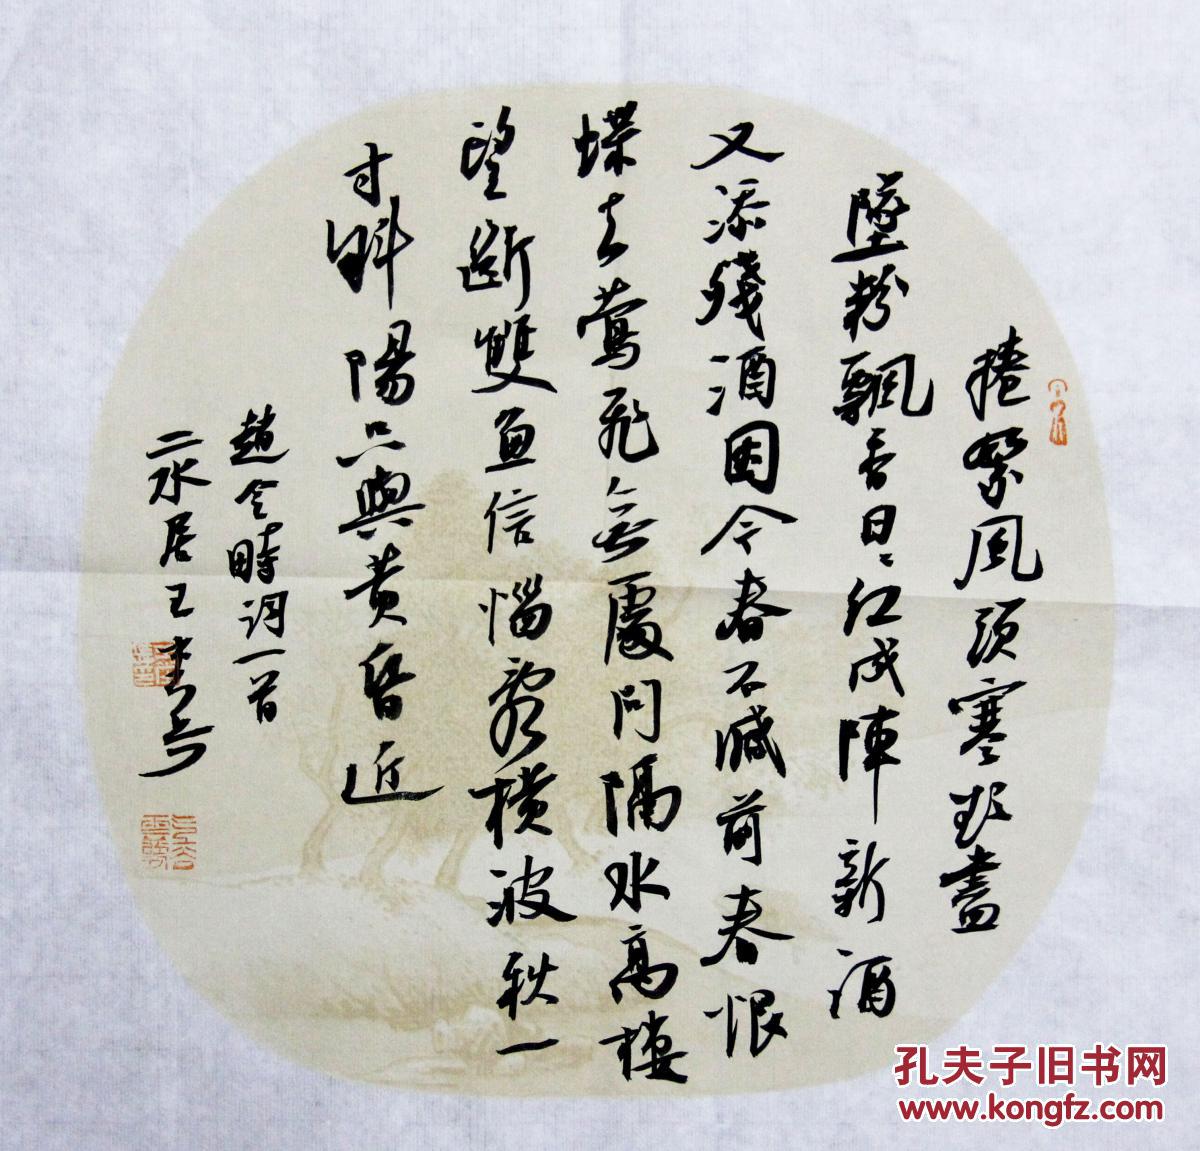 捲絮風頭寒欲盡
墜粉飄香日〻紅成陣新酒
又添殘酒困今春不減前春恨
蝶去鶯飛無處問隔水高樓
望斷雙魚信惱亂橫波秋一
寸斜陽只與黃昏近
趙令畤詞一首
二水居王
孔夫子旧书网
www.kongfz.com